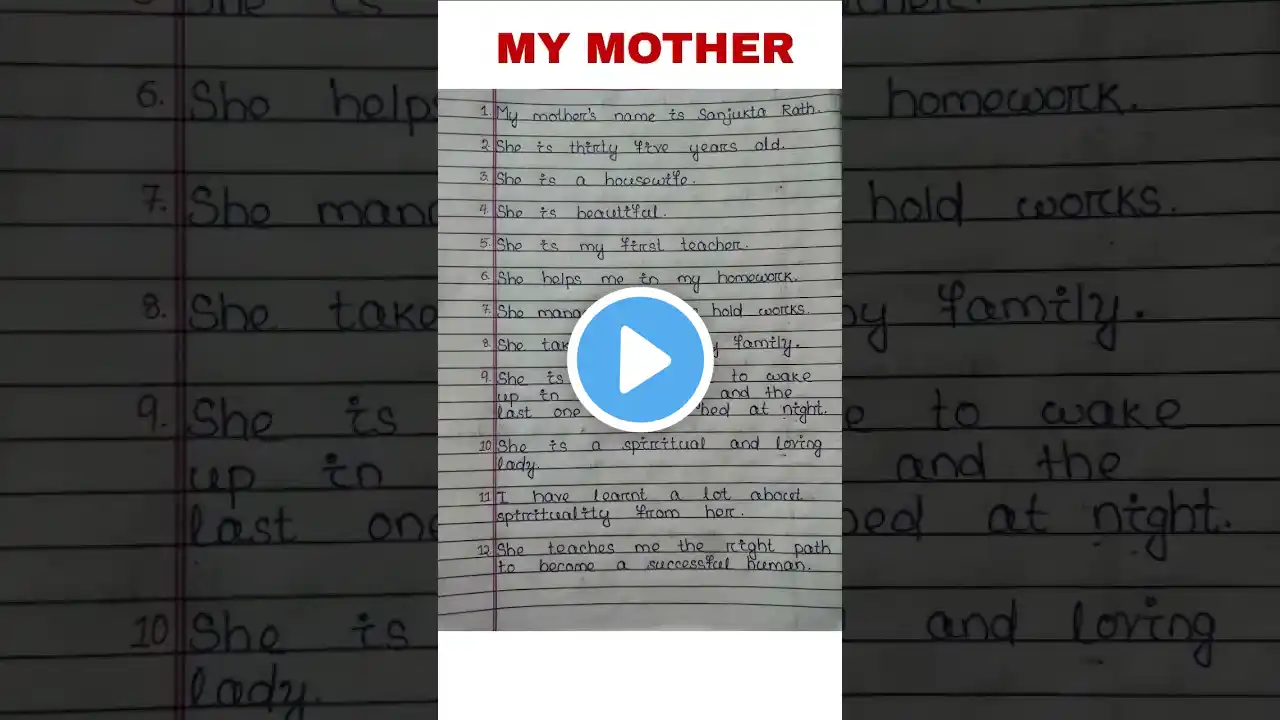 MY MOTHER
1. My mother's name is Sanjukta Rath.
2. She is thirty five years old.
3. She is a housewife.
4. She is beautiful.
5. She is my first teacher.
6. She helps me in my homework.
7. She hold works.
8. She family.
9. She is to wake
up in and the
last one bed at night.
10. She is a spiritual and loving
lady.
11. I have learnt a lot about
spirituality from her.
12. She teaches me the right path
to become a successful human.